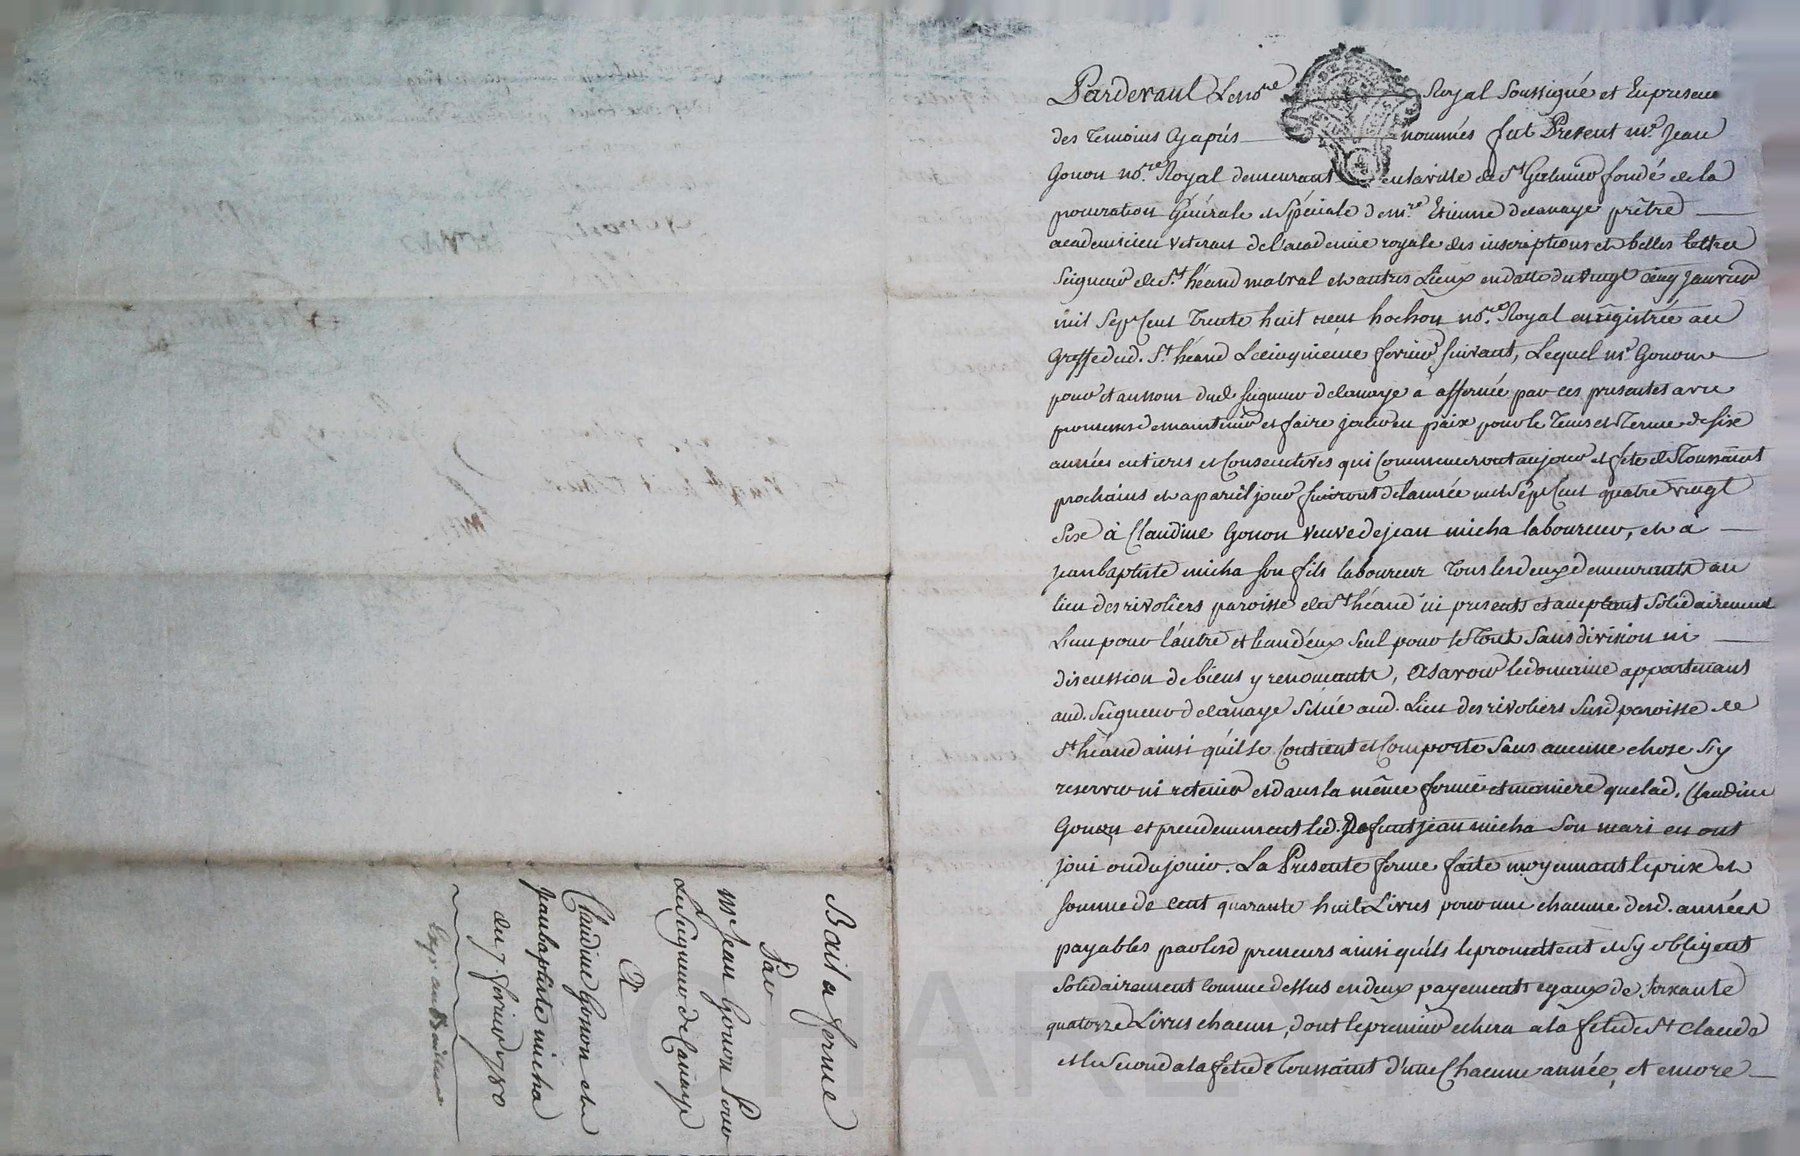 Pardevant Le no.re Royal Soussigné et En presence
des Temoins Cy aprés nommés fut Present m.e Jean
Gonon no.re Royal demeurant en la ville de S.t Galmier fondé de la
procuration Générale et Spéciale de m.re Etienne delanaye prêtre
academicien veteran de l'academie royale des inscriptions et belles lettres
Seigneur de S.t héand malval et autres Lieux en datte du vingt cinq Janvier
mil Sept Cent Trente huit reçu hochon no.re Royal enrégistrée au
Greffe dud. S.t héand Le cinquieme fevrier suivant, Lequel m.e Gonon
pour et au nom dud. seigneur delanaye a affermé par ces presentes avec
promesse de maintenir et faire jouir en paix pour le Tems et Terme de six
années entieres et Consecutives qui Commenceront au jour et fête de Toussaint
prochains et a pareil jour finiront de l'année mil Sept Cent quatre vingt
Six à Claudine Gonon veuve de jean micha laboureur, et à
jean baptiste micha son fils laboureur Tous les deux demeurants au
lieu des rivoliers paroisse de S.t héand ici presents et acceptent Solidairement
L'un pour l'autre et l'un d'eux seul pour le Tout Sans division ni
discussion de biens y renonçants, A Savoir le domaine appartenant
aud. Seigneur delanaye Situé aud. Lieu des rivoliers Susd. paroisse de
S.t héand ainsi qu'il se Contient et Comporte Sans aucune chose s'y
reserver ni retenir et dans la même forme et maniere que lad. Claudine
Gonon et precedemment led. Defunt jean micha Son mari en ont
joui ou du jouir. La Presente ferme faite moyennant le prix et
somme de cent quarante huit Livres pour une chacune desd. années
payables par lesd. preneurs ainsi qu'ils le promettent et s'y obligent
Solidairement comme dessus en deux payements egaux de soixante
quatorze Livres chacun, dont le premier echera a la fête de S.t Claude
et le Second a la fête de Toussaint d'une Chacune année, et encore
Bail a ferme
Par
m.e Jean Gonon Pour
Le Seigneur de Lanaye
A
Claudine Gonon et
jean baptiste micha
du 7 fevrier 1780